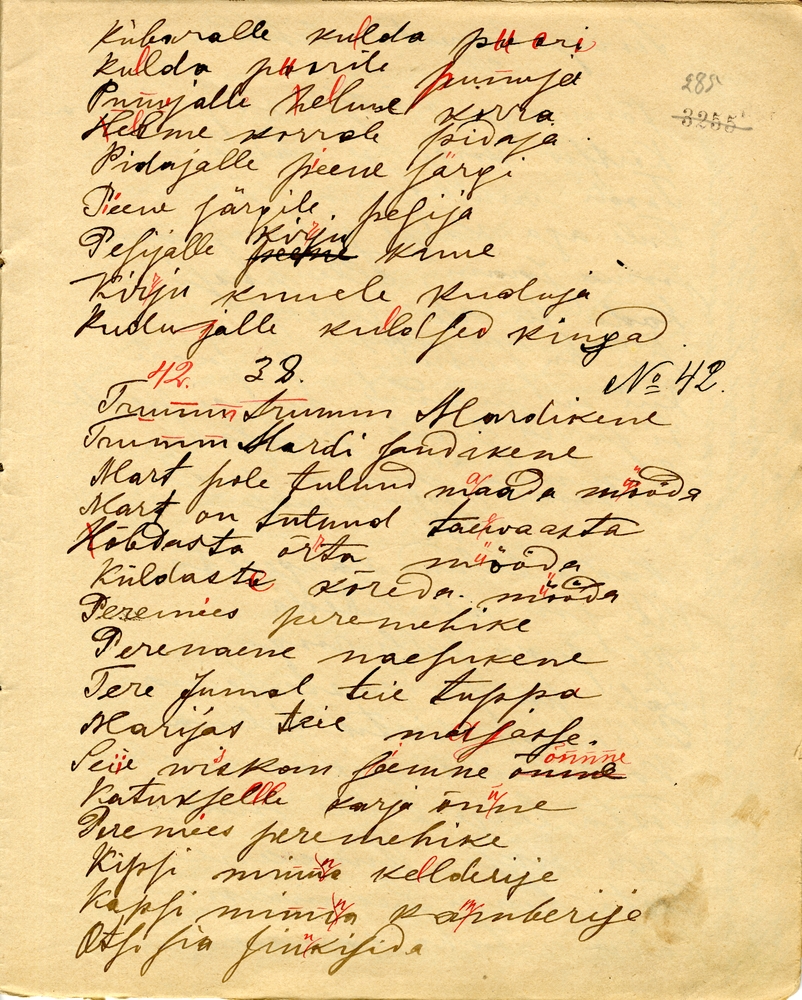 Kübaralle kulda poori
Kulda poorile punuja
285
Punujalle helme korra
3255
Helme korrale pidaja
Pidajalle peene särgi
Peene särgile pesija
Pesijalle peene kirju kuue
Kirju kuuele kuduja
Kudujalle kuldsed kingad
42. 38. No 42.
Trumm trumm Mardikene
Trumm Mardi sandikene
Mart pole tulnud maada mööda
Mart on tulnud taevaasta
Hõbdasta õrta mööda
Kuldasta kõreda mööda
Peremies peremehike
Perenaene naesukene
Tere Jumal teie tuppa
Marijas teie marjasse.
Seie wiskan siemne õnne õnnne
Katukselle karja õnne
Peremies peremehike
Kipsi minna kelderije
Kapsi minna kamberije
Otsi sia sinkisida